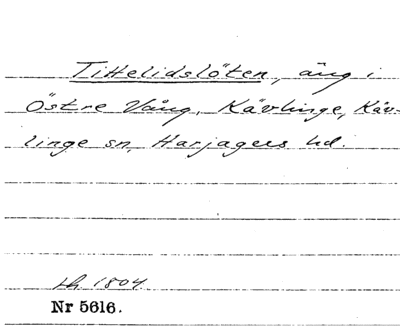 Tittelidslöten, äng i
Östre Vång, Kävlinge, Käv-
linge sn, Harjagers hd.
lh. 1804
Nr 5616.